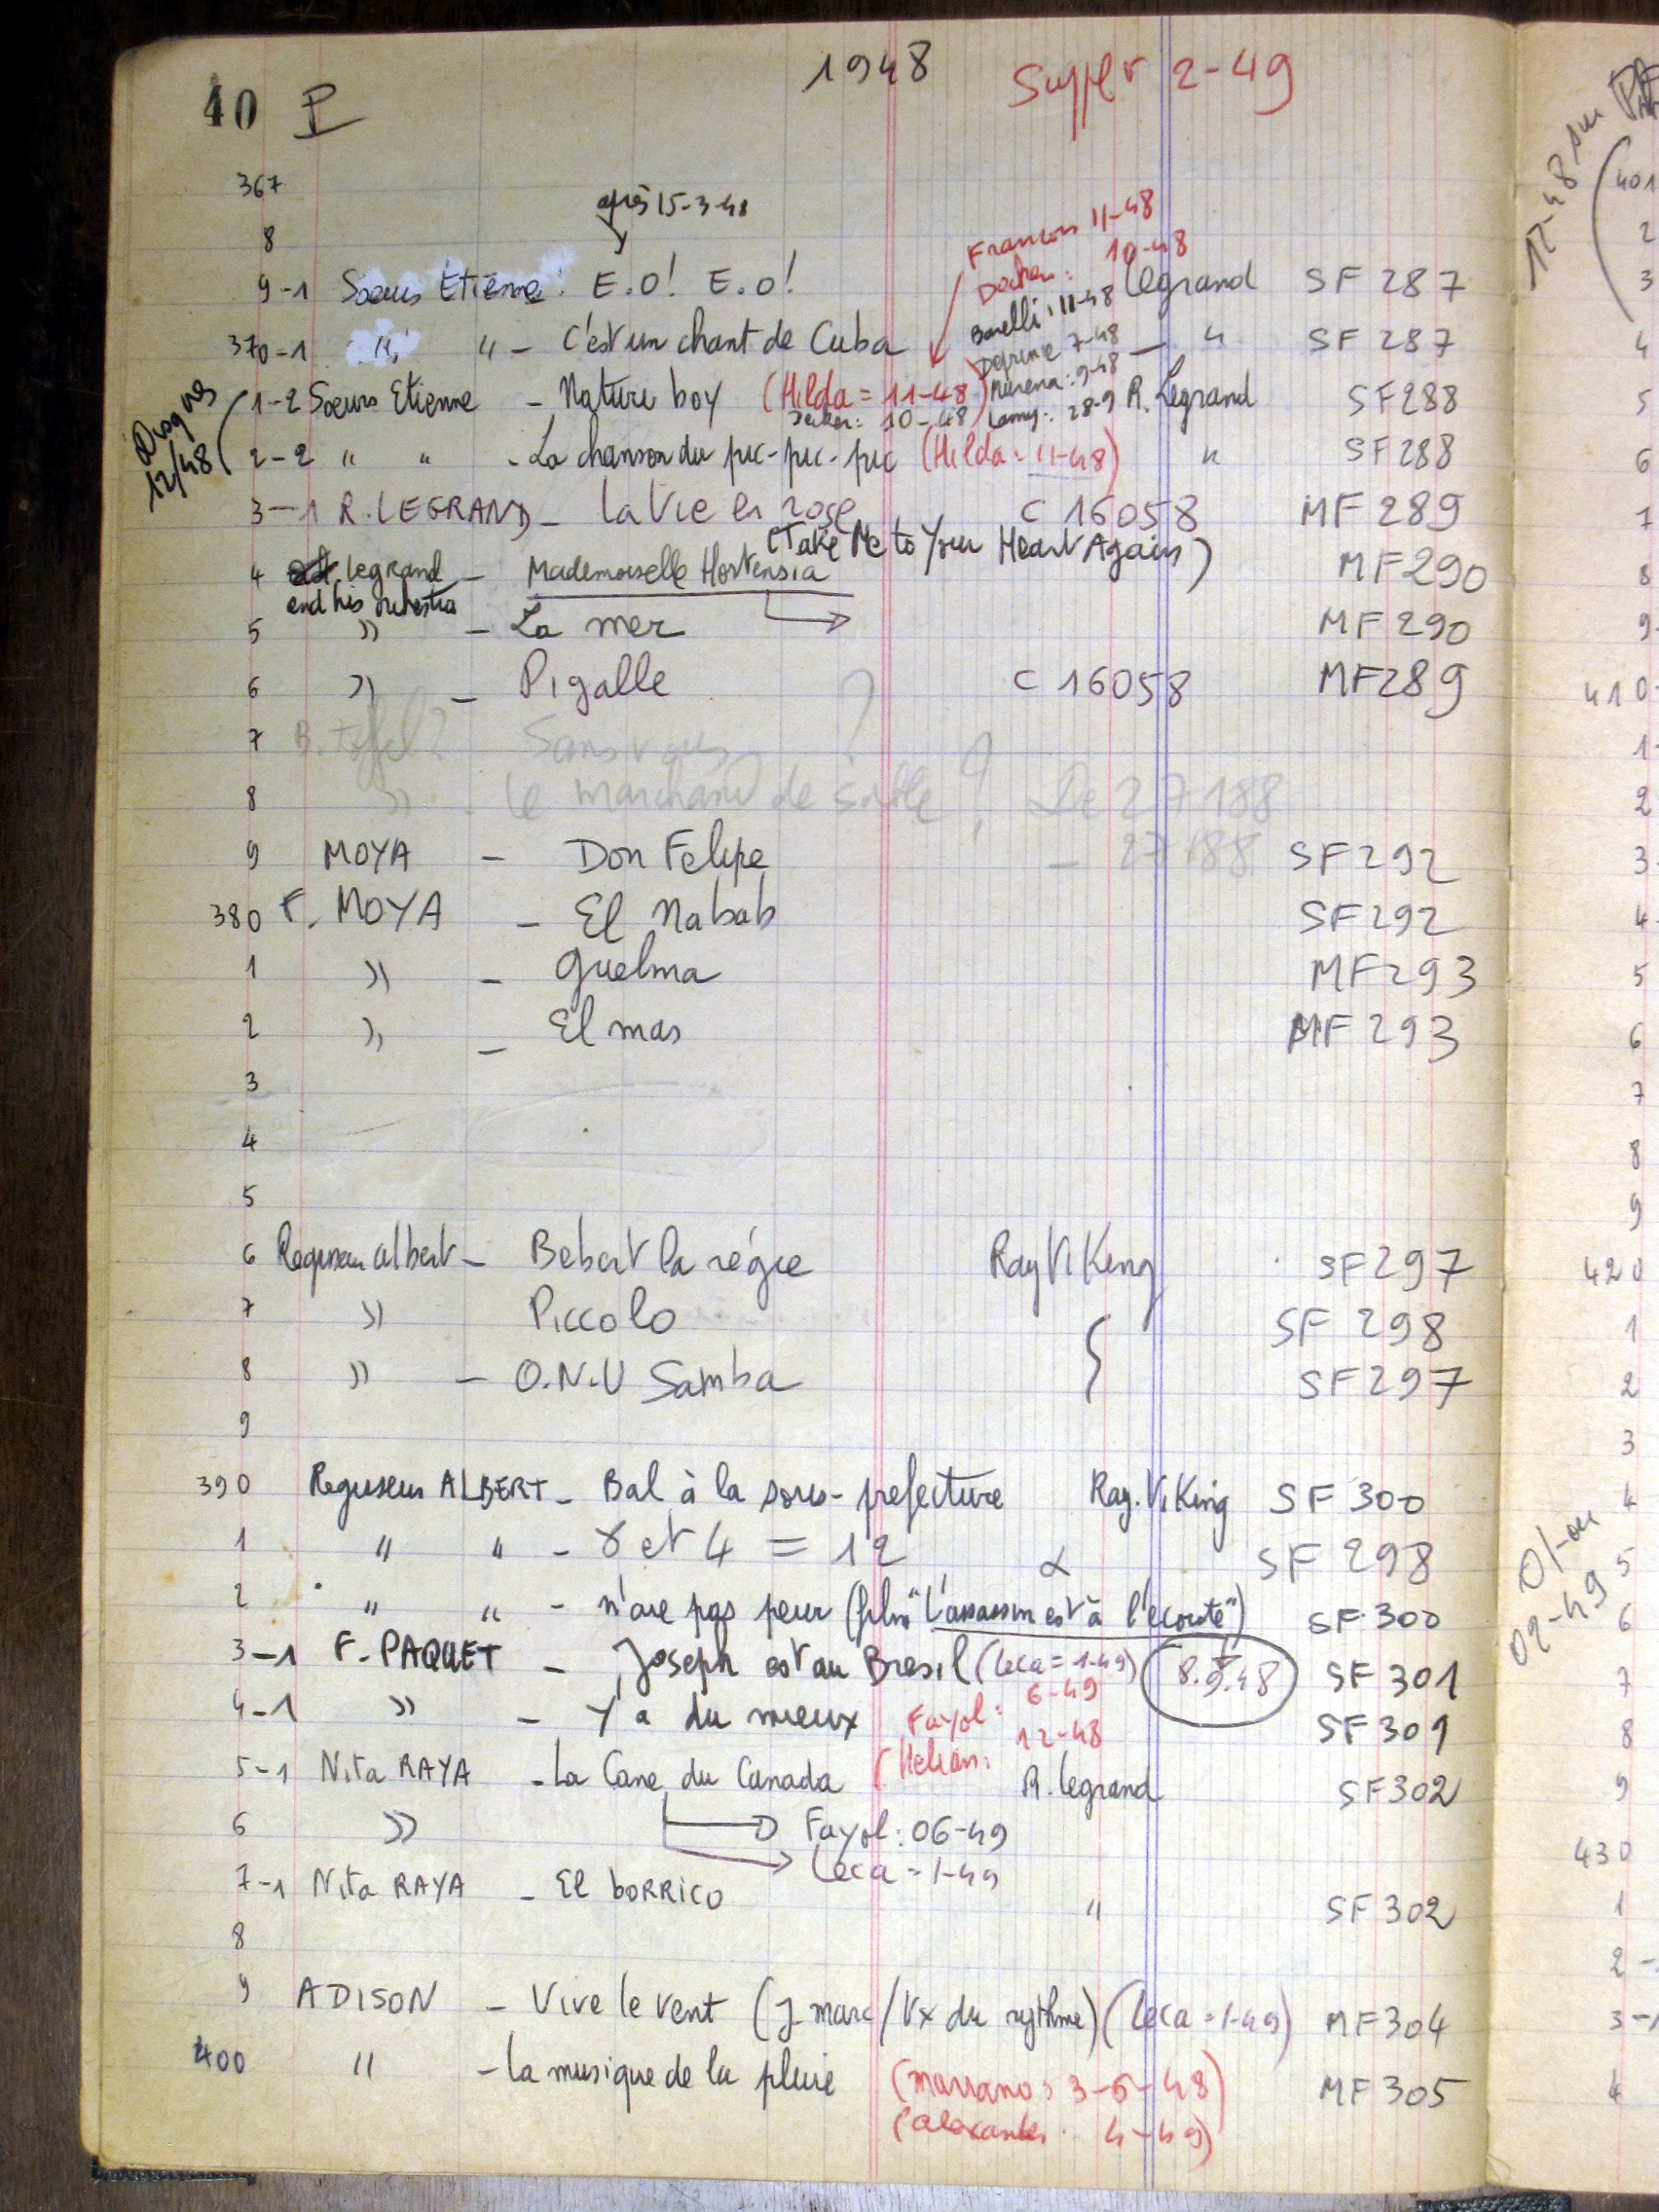 40 P 1948 Suppl 2-49
367
après 15-3-48
8
Francois 11-48
10-48
9-1 Soeurs Etienne : E.O! E.O! Legrand SF 287
Barelli : 11-48
370-1 " " - C'est un chant de Cuba 7-48 - " SF 287
Disques 12/48
1-2 Soeurs Etienne - Nature boy (Hilda = 11-48) Murena : 9-48 R. Legrand SF288
10-48 28-9
2-2 " " - La chanson du pic-pic-pic (Hilda : 11-48) " SF 288
3-1 R. LEGRAND - La Vie en rose C 16058 MF 289
(Take Me to Your Heart Again)
4 Legrand - Mademoiselle Hortensia MF290
and his orchestra
5 » - La mer MF 290
6 » - Pigalle C 16058 MF289
7 B. Toffel? Sans vous ?
8 » - le marchand de sable ? De 27188
9 MOYA - Don Felipe - 27188 SF292
380 F. MOYA - El Nabab SF292
1 » - Guelma MF293
2 » - El mas MF 293
3
4
5
6 Regisseur Albert - Bebert la régie Ray Viking SF297
7 » Piccolo SF 298
8 » - O.N.U Samba SF297
9
390 Regisseur ALBERT - Bal à la sous-prefecture Ray. Viking SF 300
1 " " - 8 et 4 = 12 SF 298
2 " " - n'aie pas peur (film "L'assassin est à l'écoute") SF 300
3-1 F. PAQUET - Joseph est au Bresil (Leca = 1-49) 8.9.48 SF 301
4-1 » - Y'a du mieux SF 301
Fayol : 6-49
5-1 Nita RAYA - La Cane du Canada (Helian : 12-48 R. Legrand SF302
6 » Fayol : 06-49
Leca = 1-49
7-1 Nita RAYA - El borrico " SF 302
8
9 ADISON - Vive le vent (J. marc/Vx du rythme) (Leca = 1-49) MF304
400 " - La musique de la pluie (Marrano : 3-6-48) MF 305
4-49)
12-48 sur
401
2
3
4
5
6
7
8
9-
410-
1-
2
3-
4-
5
6
7
8
9
420
1
2
3
4
01-ou
02-49
5
6
7
8
9
430
1
2-
3-1
4